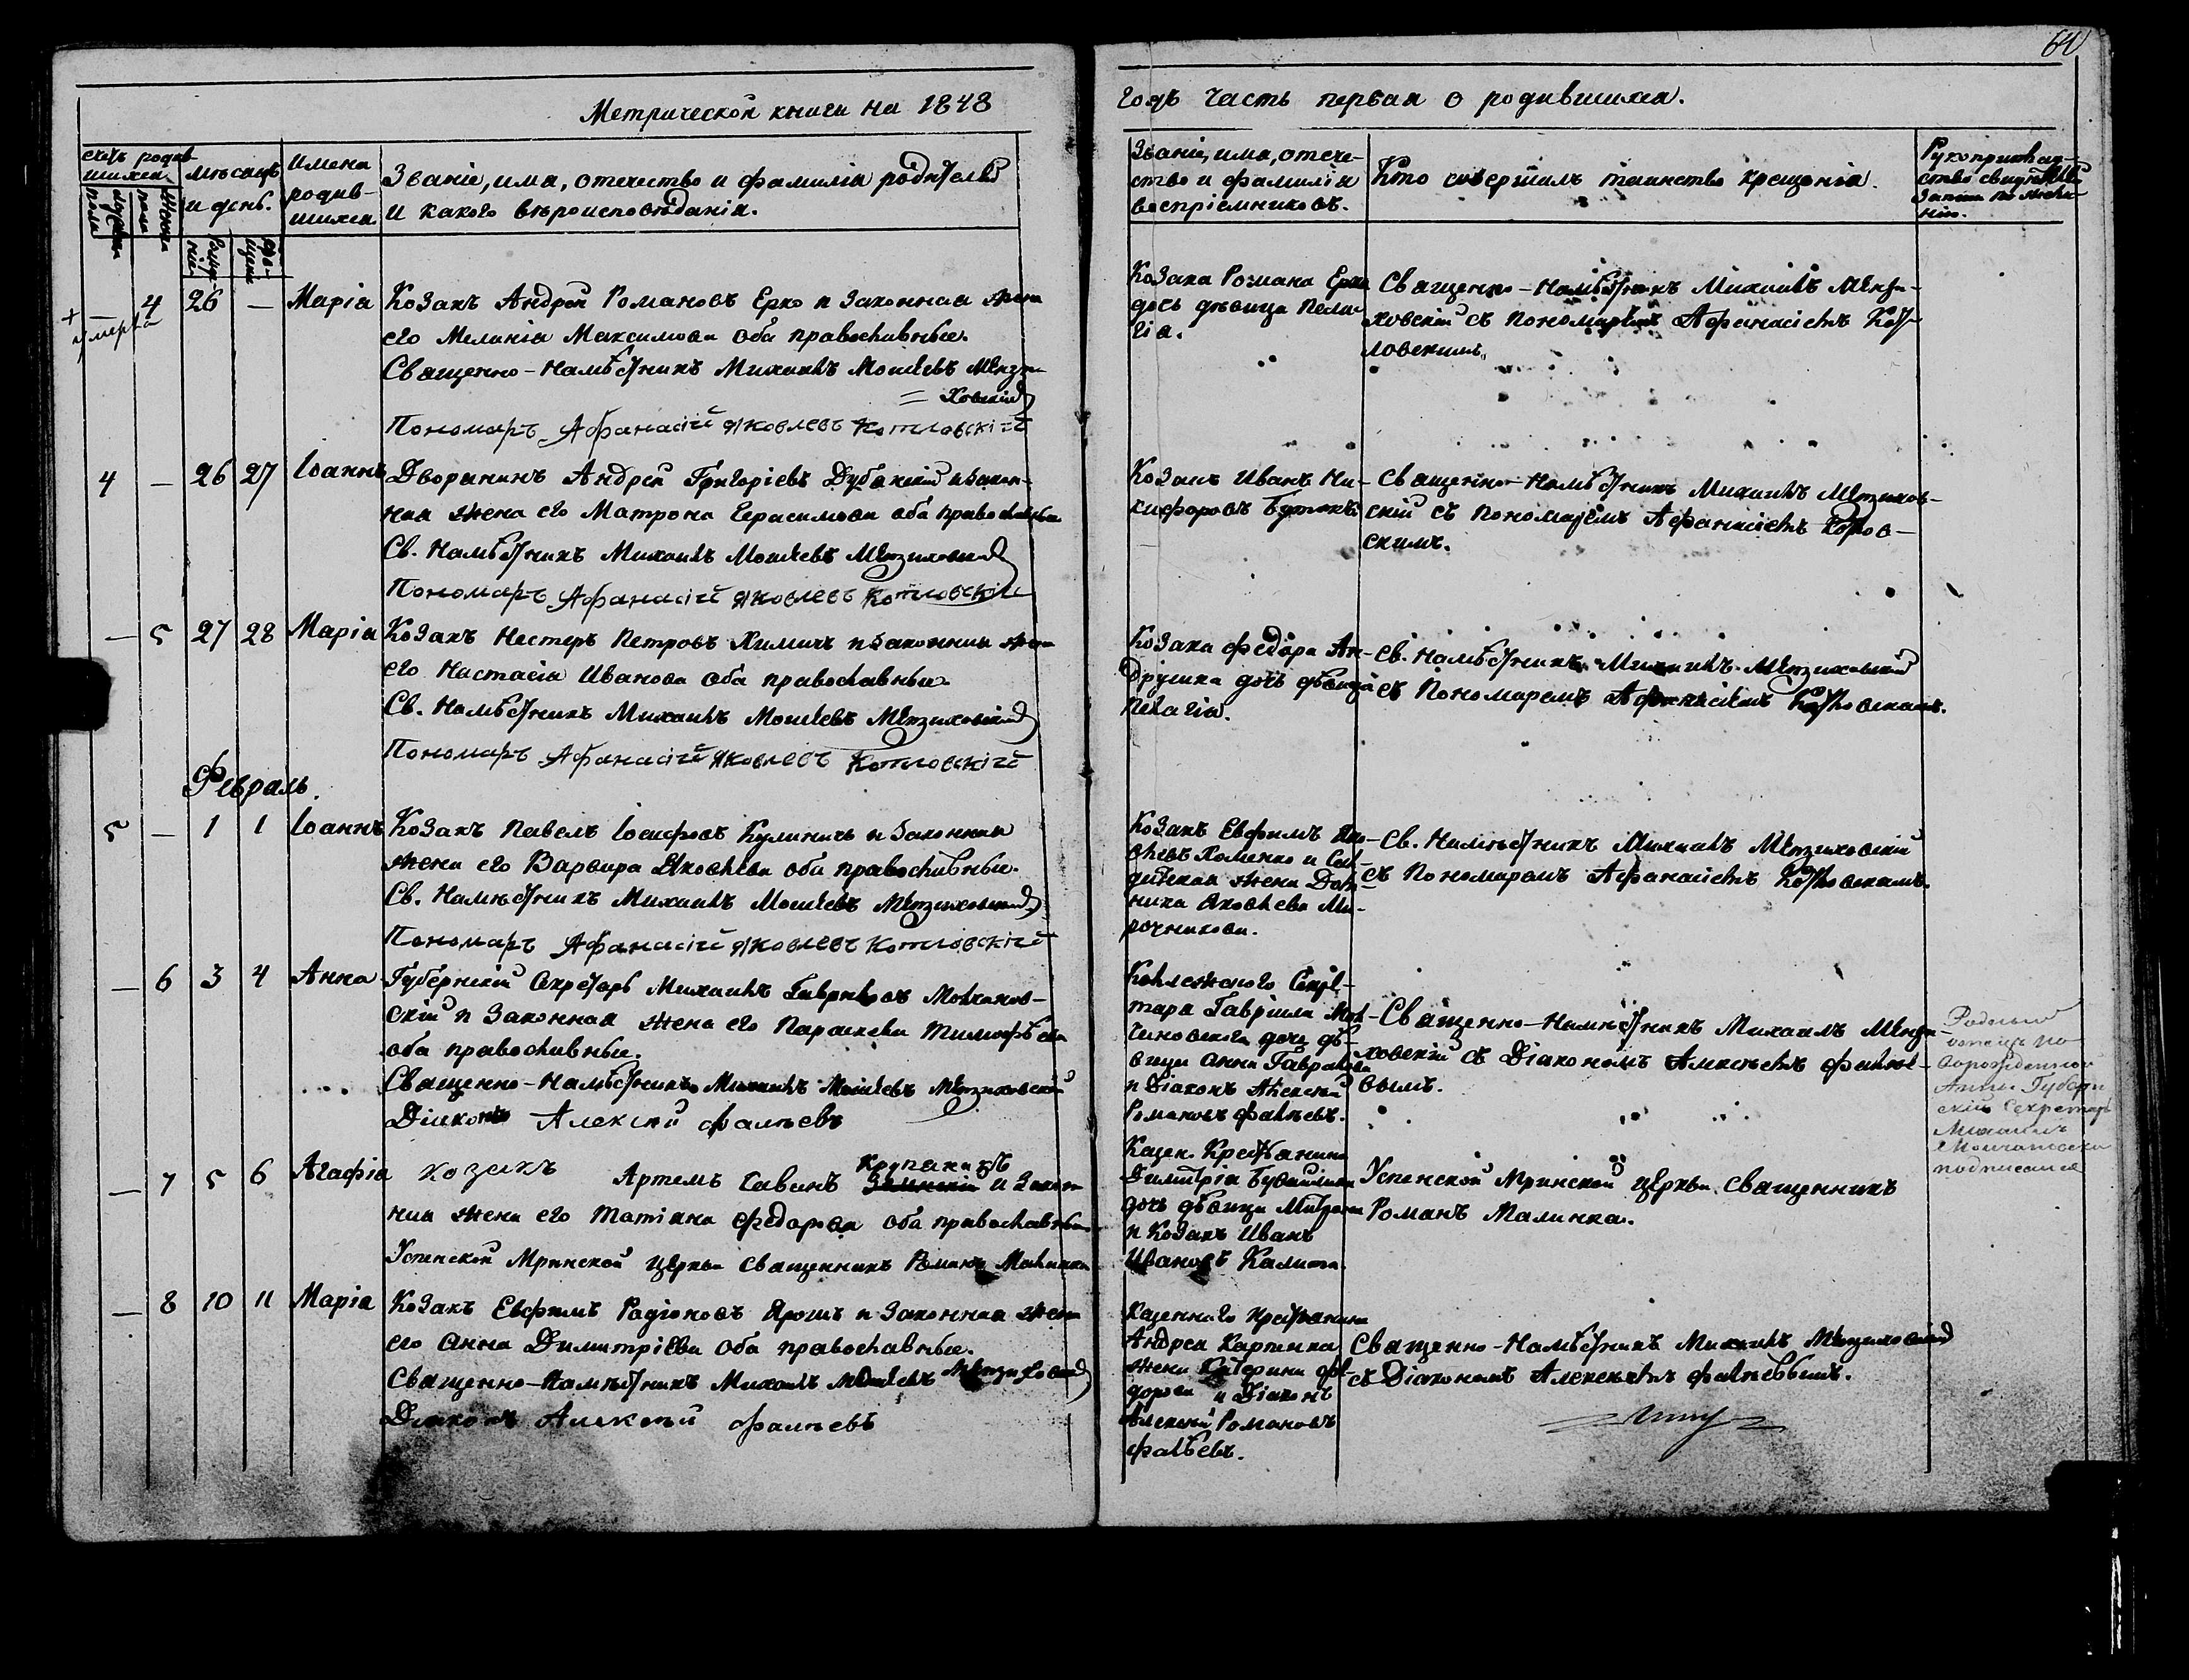 64
Метрической книги на 1848
годъ часть первая о родившихся.
счетъ родив-
шихся
мужеска
пола
женска
пола
мѣсяцъ
и день.
рожде-
ніе
кре-
щеніе
Имена
родив-
шихся
Званіе, имя, отечество и фамилія родителей
и какого вѣроисповѣданія.
Званіе, имя, отече-
ство и фамилія
воспріемниковъ.
Кто совершилъ таинство крещенія.
Рукоприклад-
ство свидѣтелей
записи по жела-
нію.
+
умерла
4 26 — Марія
Козакъ Андрей Романовъ Ерко и законная жена
его Меланія Максимова оба православные.
Священно-Намѣстникъ Михаилъ Моисеевъ
Пономарь Афанасій Яковлевъ Котловскій
Козака Романа Ерка
дочь дѣвица Пела-
гія.
Священно-Намѣстникъ Михаилъ
ховскій съ Пономаремъ Афанасіемъ Кот-
ловскимъ.
4 — 26 27 Іоаннъ
Дворянинъ Андрей Григоріевъ и закон-
ная жена его Матрона Герасимова оба православные
Св. Намѣстникъ Михаилъ Моисеевъ
Пономарь Афанасій Яковлевъ Котловскій
Козакъ Иванъ Ни-
кифоровъ
Священно-Намѣстникъ Михаилъ
скій съ Пономаремъ Афанасіемъ Котлов-
скимъ.
— 5 27 28 Марія
Козакъ Нестеръ Петровъ Химичъ и законная жена
его Настасія Иванова оба православные
Св. Намѣстникъ Михаилъ Моисеевъ
Пономарь Афанасій Яковлевъ Котловскій
Козака Федора Ан-
друшка дочь дѣвица
Пелагія.
Св. Намѣстникъ Михаилъ
съ Пономаремъ Афанасіемъ Котловскимъ.
Февраль.
5 — 1 1 Іоаннъ
Козакъ Павелъ Іосифовъ Кулиничъ и законная
жена его Варвара Яковлева оба православные.
Св. Намѣстникъ Михаилъ Моисеевъ
Пономарь Афанасій Яковлевъ Котловскій
Козакъ Евфимъ Яко-
влевъ Хоменко и Сол-
датская жена Дом-
ника Яковлева Ми-
рочникова.
Св. Намѣстникъ Михаилъ
съ Пономаремъ Афанасіемъ Котловскимъ.
— 6 3 4 Анна
Губернскій Секретарь Михаилъ Гавриловъ Молчанов-
скій и законная жена его Параскева Тимофѣева
оба православные.
Священно-Намѣстникъ Михаилъ Моисеевъ
Діаконъ Алексій Фалѣевъ
Коллежскаго Секре-
таря Гавріила Мол-
чановскаго дочь дѣ-
вица Анна Гаврилова
и Діаконъ Алексій
Романовъ Фалѣевъ.
Священно-Намѣстникъ Михаилъ
ховскій съ Діакономъ Алексѣемъ Фалѣе-
вымъ.
новорожденной
Анны Губерн
скій Секретарь
Михаилъ
Молчановскій
подписался
— 7 5 6 Агафія
козакъ Артемъ Савинъ и закон
ная жена его Татіана Федорова оба православные
Успенской Мринской церкви священникъ Романъ Малинка
Казен. Крестьянина
Димитрія
дочь дѣвица Матрона
и Козакъ Иванъ
Ивановъ Калита.
Успенской Мринской церкви священникъ
Романъ Малинка.
— 8 10 11 Марія
Козакъ Евфимъ Радіоновъ Ярошъ и законная жена
его Анна Димитріева оба православные.
Священно-Намѣстникъ Михаилъ Моисеевъ
Діаконъ Алексій Фалѣевъ
Казеннаго Крестьянина
Андрея Карпенка
жена Катерина Фе-
дорова и Діаконъ
Алексій Романовъ
Фалѣевъ.
Священно-Намѣстникъ Михаилъ
съ Діакономъ Алексѣемъ Фалѣевымъ.